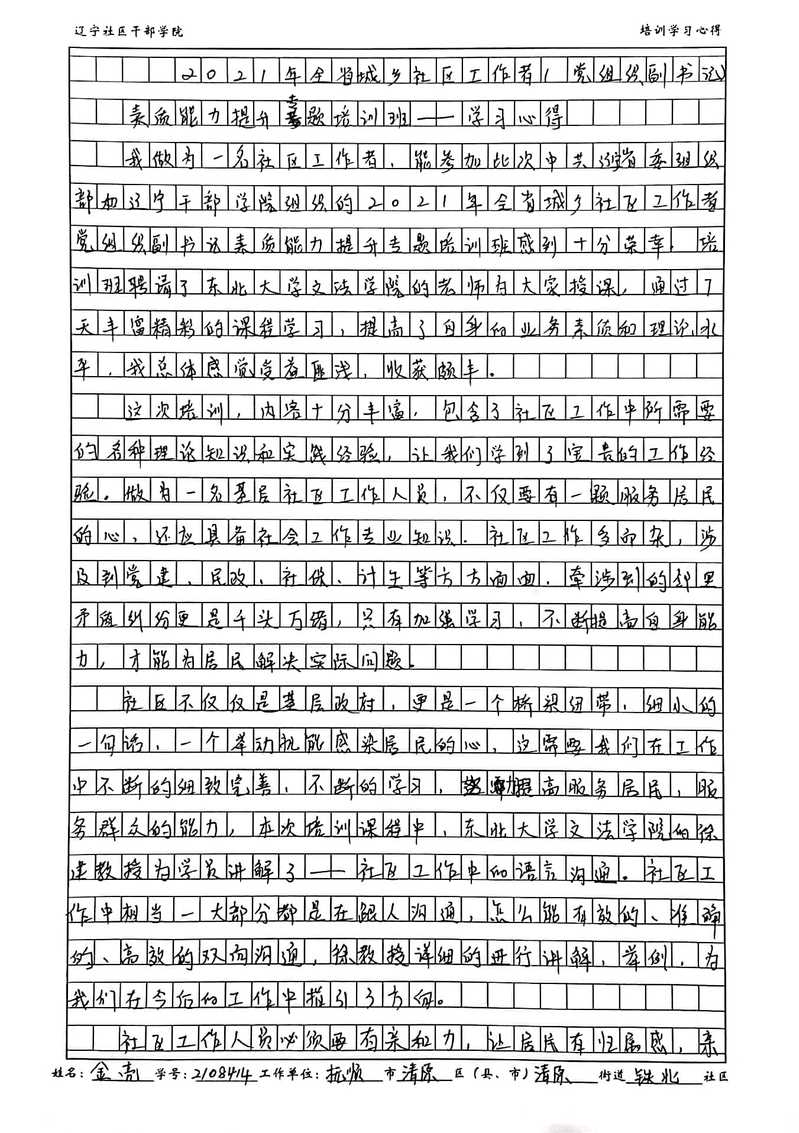 辽宁社区干部学院 培训学习心得
2021年全省城乡社区工作者(党组织副书记)
素质能力提升专题培训班——学习心得
我做为一名社区工作者,能参加此次中共辽宁省委组织
部和辽宁干部学院组织的2021年全省城乡社区工作者
党组织副书记素质能力提升专题培训班感到十分荣幸。培
训班聘请了东北大学文法学院的老师为大家授课,通过7
天丰富精彩的课程学习,提高了自身的业务素质和理论水
平,我总体感觉受益匪浅,收获颇丰。
这次培训,内容十分丰富,包含了社区工作中所需要
的各种理论知识和实践经验,让我们学到了宝贵的工作经
验。做为一名基层社区工作人员,不仅要有一颗服务居民
的心,还应具备社会工作专业知识.社区工作多而杂,涉
及到党建、民政、社保、计生等方方面面.牵涉到的邻里
矛盾纠纷更是千头万绪,只有加强学习,不断提高自身能
力,才能为居民解决实际问题.
社区不仅仅是基层政府,更是一个桥梁纽带,细小的
一句话,一个举动就能感染居民的心,这需要我们在工作
中不断的细致完善,不断的学习,提高服务居民,服
务群众的能力,本次培训课程中,东北大学文法学院的徐
建教授为学员讲解了——社区工作中的语言沟通。社区工
作中相当一大部分都是在跟人沟通,怎么能有效的、准确
的、高效的双向沟通,徐教授详细的进行讲解,举例,为
我们在今后的工作中指引了方向。
社区工作人员必须要有亲和力,让居民有归属感,亲
姓名:金亮 学号:2108414 工作单位:抚顺 市 清原 区(县、市)清原 街道 铁北 社区